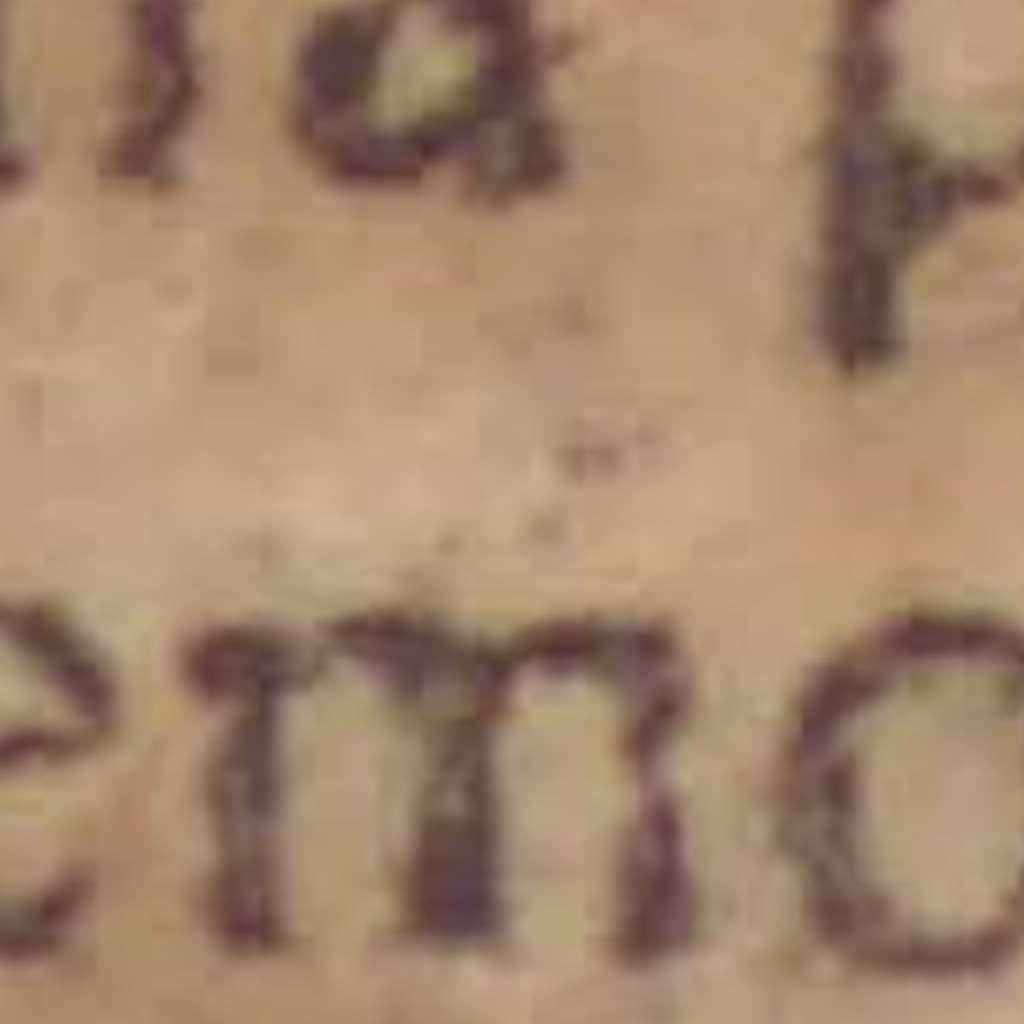 na p
emo